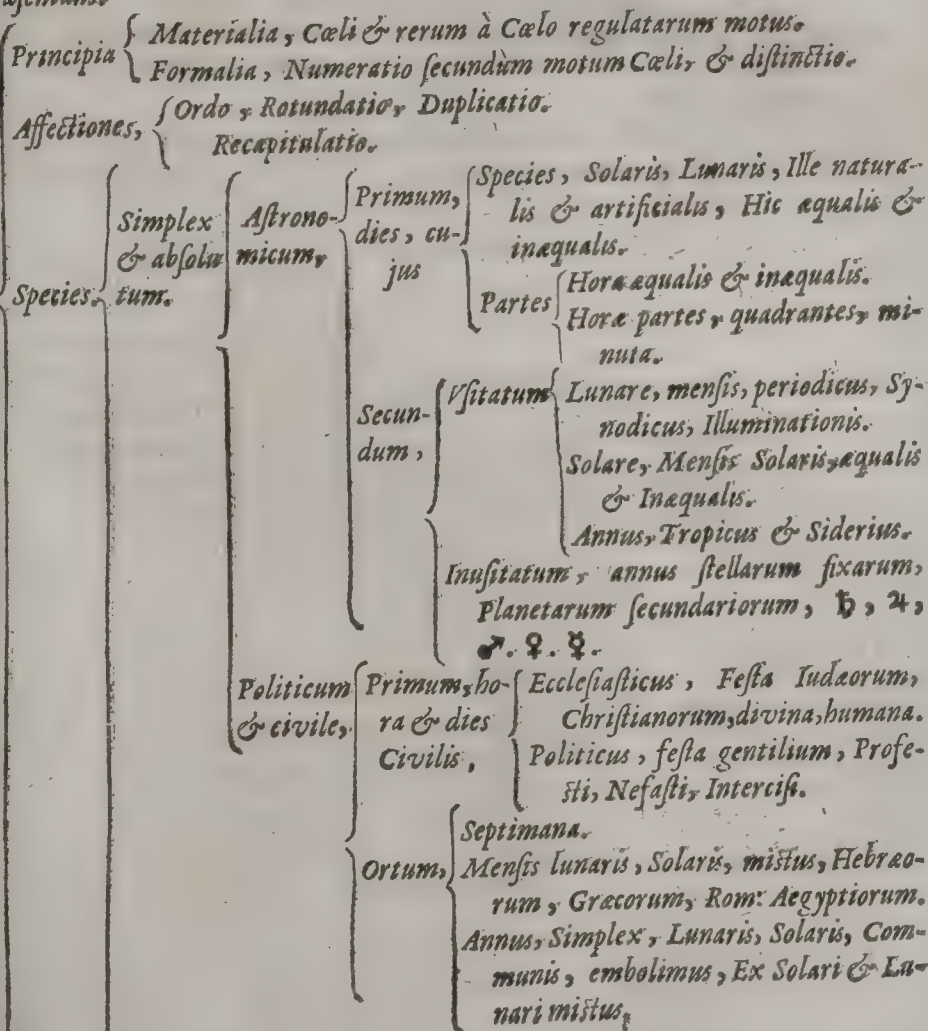 Principia
Materialia, Cœli & rerum à Cœlo regulatarum motus.
Formalia, Numeratio ſecundùm motum Cœli, & diſtinctio.
Affectiones,
Ordo, Rotundatio, Duplicatio.
Recapitulatio.
Species.
Simplex
& abſolu
tum.
Aſtrono-
micum,
Primum,
dies, cu-
jus
Species, Solaris, Lunaris, Ille natura-
lis & artificialis, Hic æqualis &
inæqualis.
Partes
Horæ æqualis & inæqualis.
Horæ partes, quadrantes, mi-
nuta.
Secun-
dum,
Vſitatum
Lunare, menſis, periodicus, Sy-
nodicus, Illuminationis.
Solare, Menſis Solaris, æqualis
& Inæqualis.
Annus, Tropicus & Siderius.
Inuſitatum, annus ſtellarum fixarum,
Planetarum ſecundariorum, ♄, ♃,
♂. ♀. ☿.
Politicum
& civile,
Primum, ho-
ra & dies
Civilis,
Eccleſiaſticus, Feſta Iudæorum,
Chriſtianorum, divina, humana.
Politicus, feſta gentilium, Profe-
ſti, Nefaſti, Interciſi.
Ortum,
Septimana.
Menſis lunaris, Solaris, miſtus, Hebræo-
rum, Græcorum, Rom: Aegyptiorum.
Annus, Simplex, Lunaris, Solaris, Com-
munis, embolimus, Ex Solari & Lu-
nari miſtus,